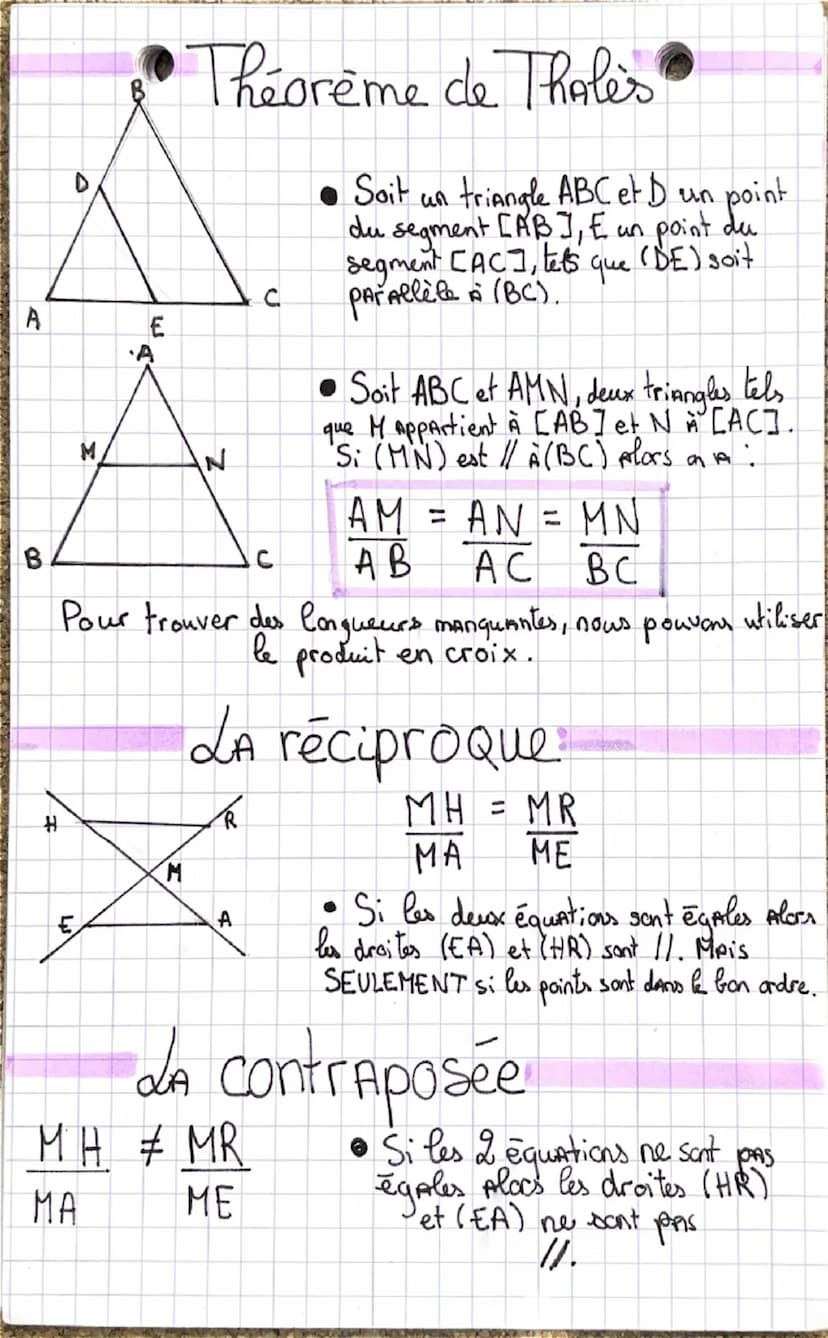 Théorème de Thalès
B
D
A
E
C
• Soit un triangle ABC et D un point
du segment [AB], E un point du
segment [AC], tels que (DE) soit
parallèle à (BC).
A
M
N
B
C
• Soit ABC et AMN, deux triangles tels
que M appartient à [AB] et N à [AC].
Si (MN) est // à (BC) alors on a :
AM/AB = AN/AC = MN/BC
Pour trouver des longueurs manquantes, nous pouvons utiliser
le produit en croix.
La réciproque
H
R
M
E
A
MH/MA = MR/ME
• Si les deux équations sont égales alors
les droites (EA) et (HR) sont //. Mais
SEULEMENT si les points sont dans le bon ordre.
La contraposée
MH/MA ≠ MR/ME
• Si les 2 équations ne sont pas
égales alors les droites (HR)
et (EA) ne sont pas
//.